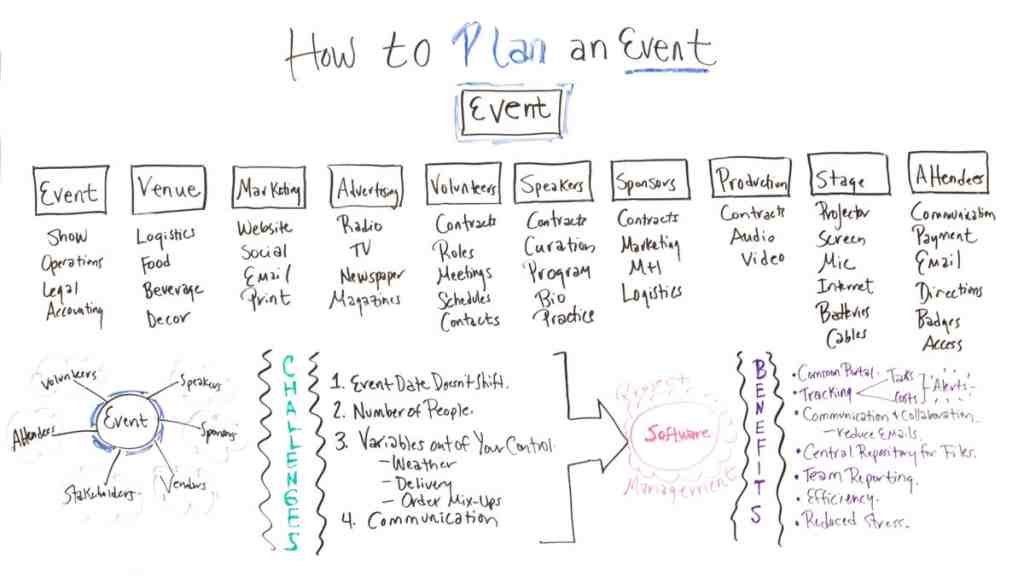 How to Plan an Event
Event
Event
Show
Operations
Legal
Accounting
Venue
Logistics
Food
Beverage
Decor
Marketing
Website
Social
Email
Print
Advertising
Radio
TV
Newspaper
Magazines
Volunteers
Contracts
Roles
Meetings
Schedules
Contacts
Speakers
Contracts
Curation
Program
Bio
Practice
Sponsors
Contracts
Marketing
Mtl
Logistics
Production
Contracts
Audio
Video
Stage
Projector
Screen
Mic
Internet
Batteries
Cables
Attendees
Communication
Payment
Email
Directions
Badges
Access
Event
Volunteers
Speakers
Sponsors
Vendors
Stakeholders
Attendees
CHALLENGES
1. Event Date Doesn't Shift.
2. Number of People.
3. Variables out of Your Control.
- Weather
- Delivery
- Order Mix-Ups
4. Communication
Project
Software
Management
BENEFITS
• Common Portal.
• Tracking
Tasks
Costs
Alerts
• Communication & Collaboration
- reduce Emails.
• Central Repository for Files.
• Team Reporting.
• Efficiency.
• Reduced Stress.